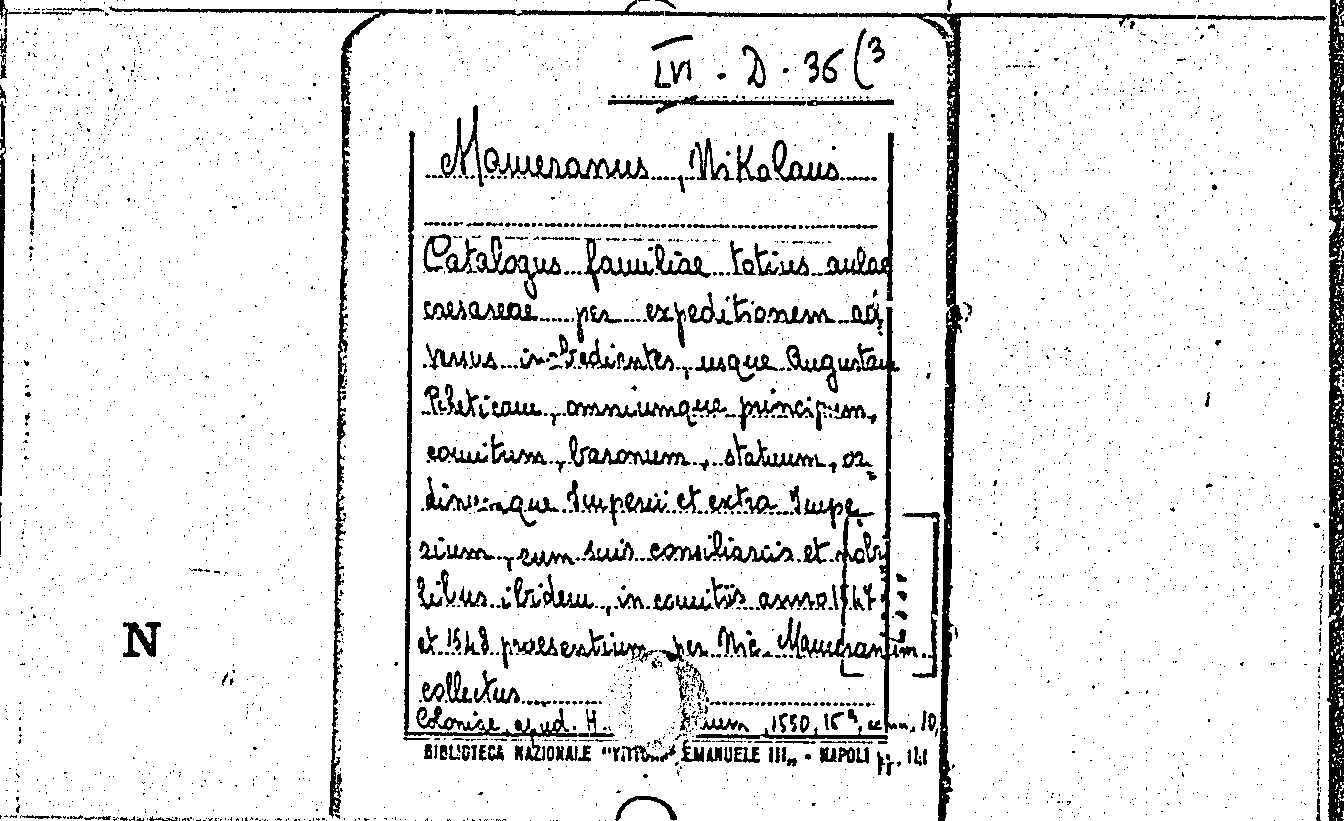 LVI . D . 36 (3
Mameranus, Nikolaus
Catalogus familiae totius aulae
caesareae per expeditionem ad
versus inobedientes, usque Augustam
Rheticam, omniumque principum,
comitum, baronum, statuum, or
dinumque Imperii et extra Impe
rium, cum suis consiliariis et nobi
libus ibidem, in comitiis anno 1547
et 1548 praesentium per Nic. Mameranum
collectus
Coloniae, apud. H. 1550, 16°, 10,
BIBLIOTECA NAZIONALE "VITTORIO EMANUELE III„ - NAPOLI pp. 141
N